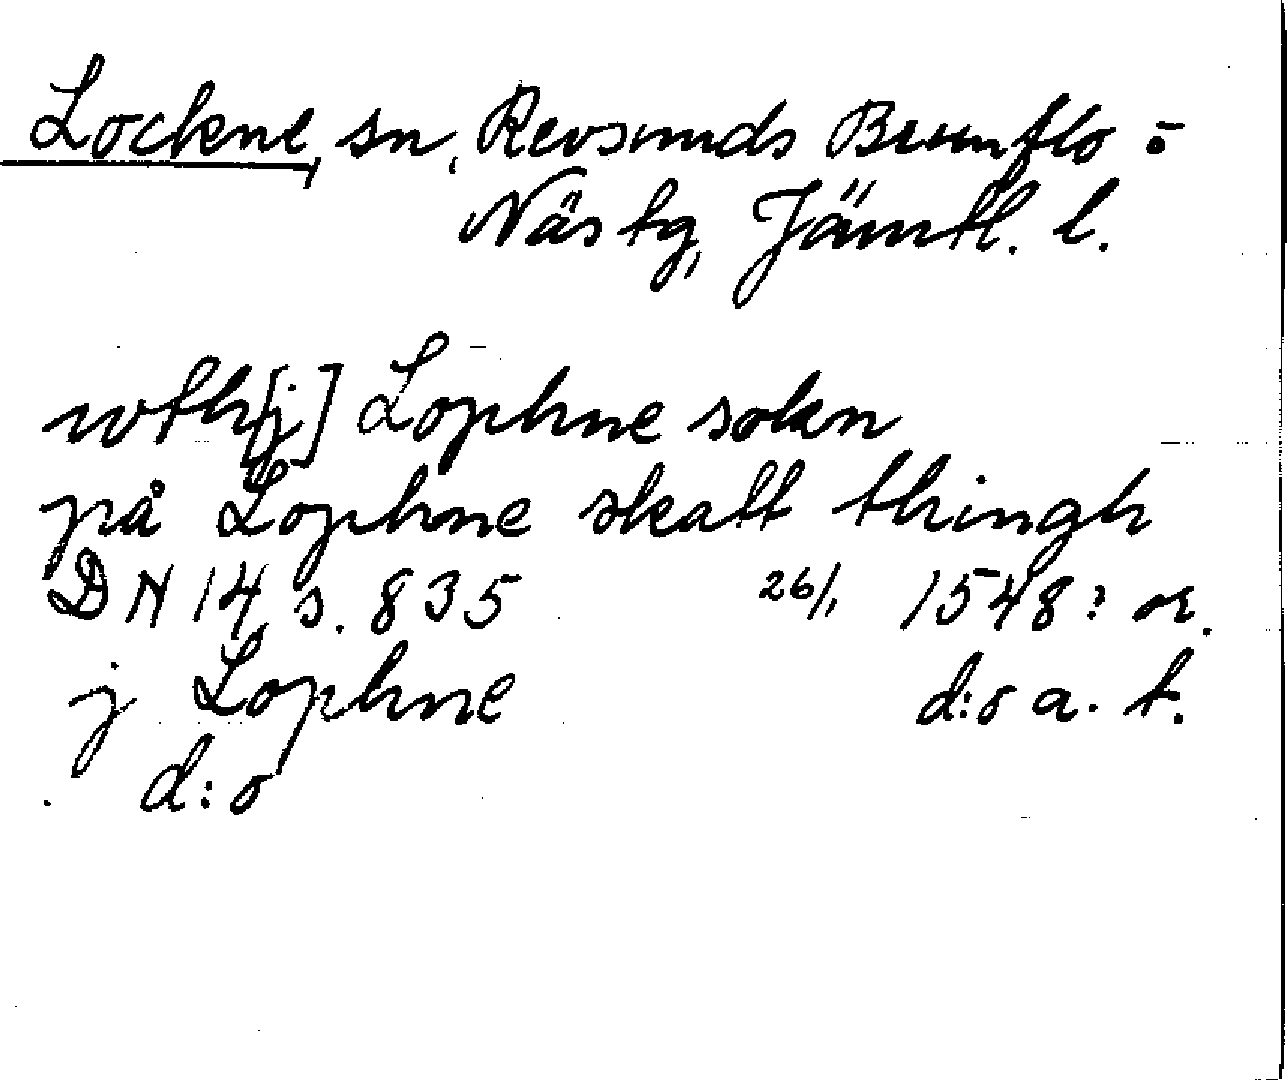 Lockne, sn, Revsunds Brunflo o
Näs tg, Jämtl. l.
wthi[j] Lophne sokn
på Lophne skatt thingh
DN 14 s. 835 26/1 1548? or.
j Lophne d:o a. t.
d:o